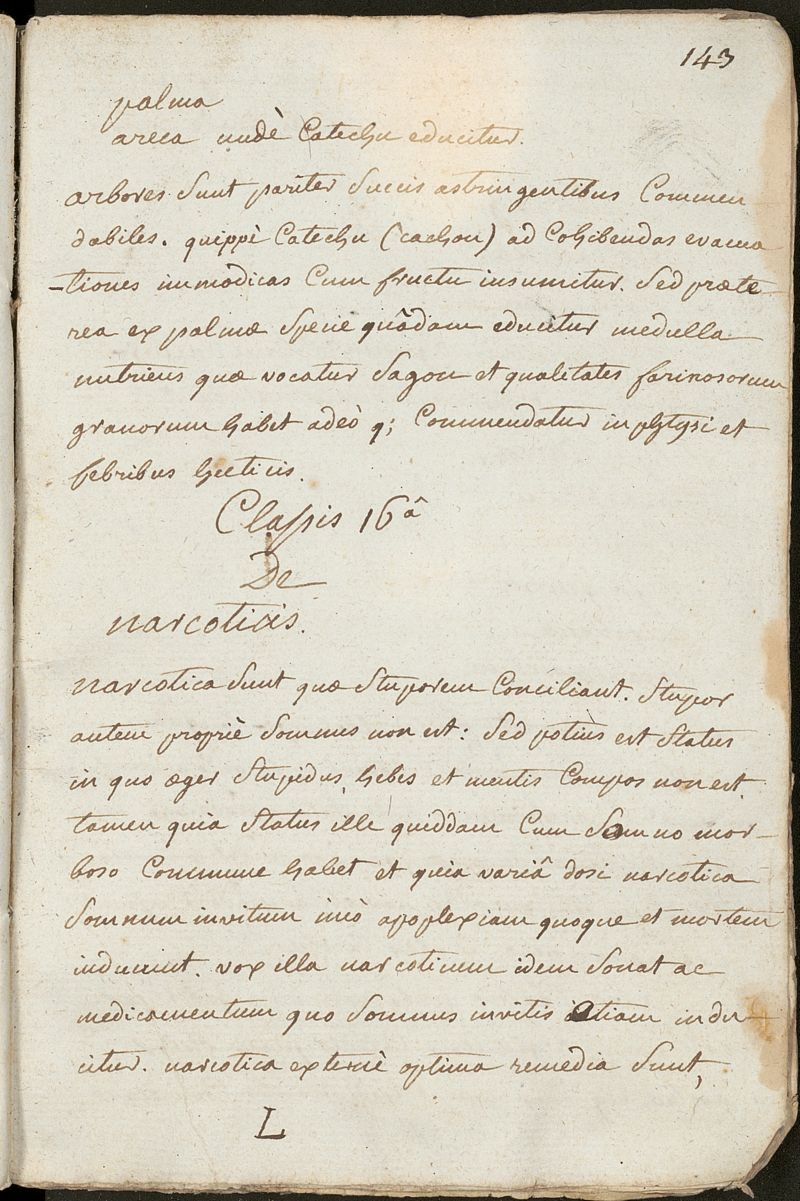 143
palma
areca undè Catechu educitur.
arbores sunt pariter succis astringentibus Commen
dabiles. quippè Catechu (cachou) ad Cohibendas evacua
-tiones immodicas Cum fructu insumitur. Sed præte
rea ex palmæ specie quâdam educitur medulla
nutriens quæ vocatur Sagou et qualitates farinosorum
granorum habet adeò q; Commendatur in phtysi et
febribus hecticis.
Classis 16â
De
narcoticis.
narcotica sunt quæ stuporem Conciliant. Stupor
autem propriè somnus non est: Sed potiùs est status
in quo æger stupidus, hebes et mentis Compos non est.
tamen quia status ille quiddam Cum somno mor-
boso Commune habet et quia variâ dosi narcotica
somnum invitum imò apoplexiam quoque et mortem
inducunt. vox illa narcoticum idem sonat ac
medicamentum quo somnus invitis etiam indu-
citur. narcotica externè optima remedia sunt,
L